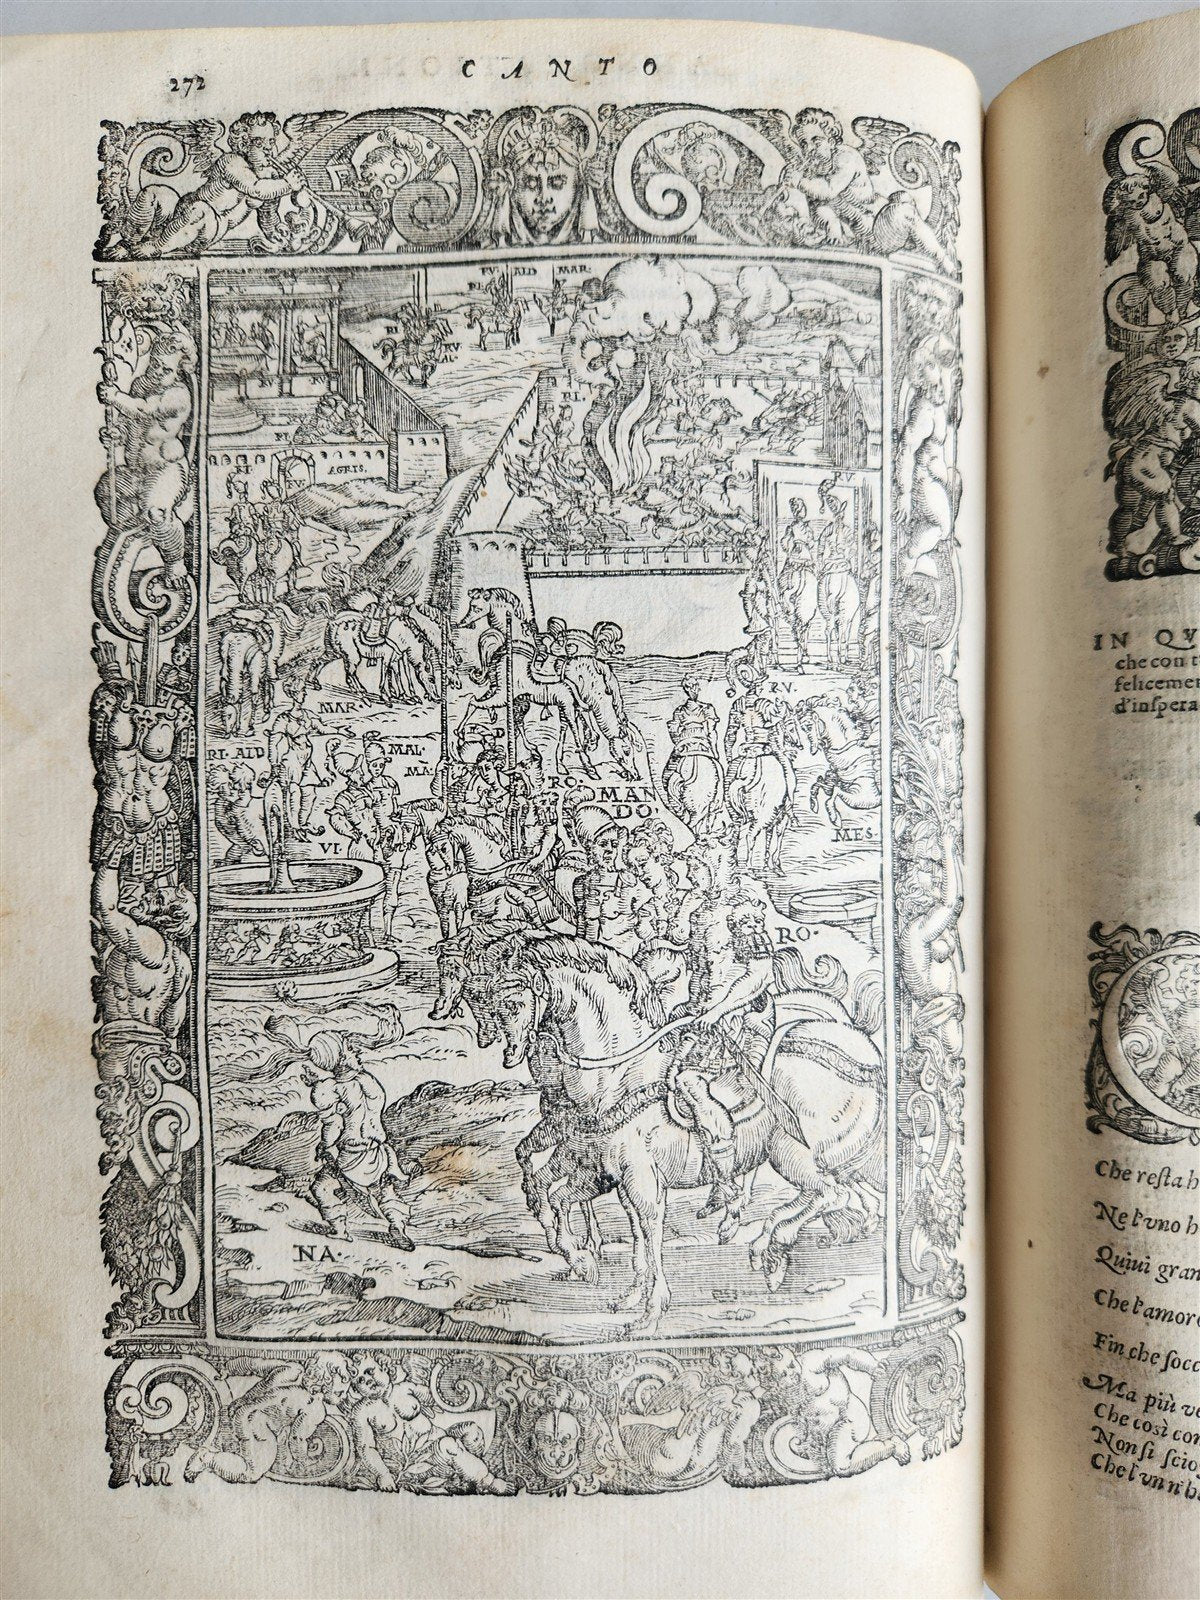 272
CANTO
RV ALD MAR.
RI.
RI
RV
AL
RV RV
RI
RI.
RI
RI
AGRIS.
RV
RV
MAR.
RV.
RI. ALD
MAL.
MA.
RO.
MAN
DO.
VI.
MES.
RO.
NA.
IN QV
che con t
felicemen
d'inspera
Che resta h
Ne l'uno h
Quiui gran
Che l'amoro
Fin che socc
Ma più ve
Che così con
Non si scio
Che l'un n'h